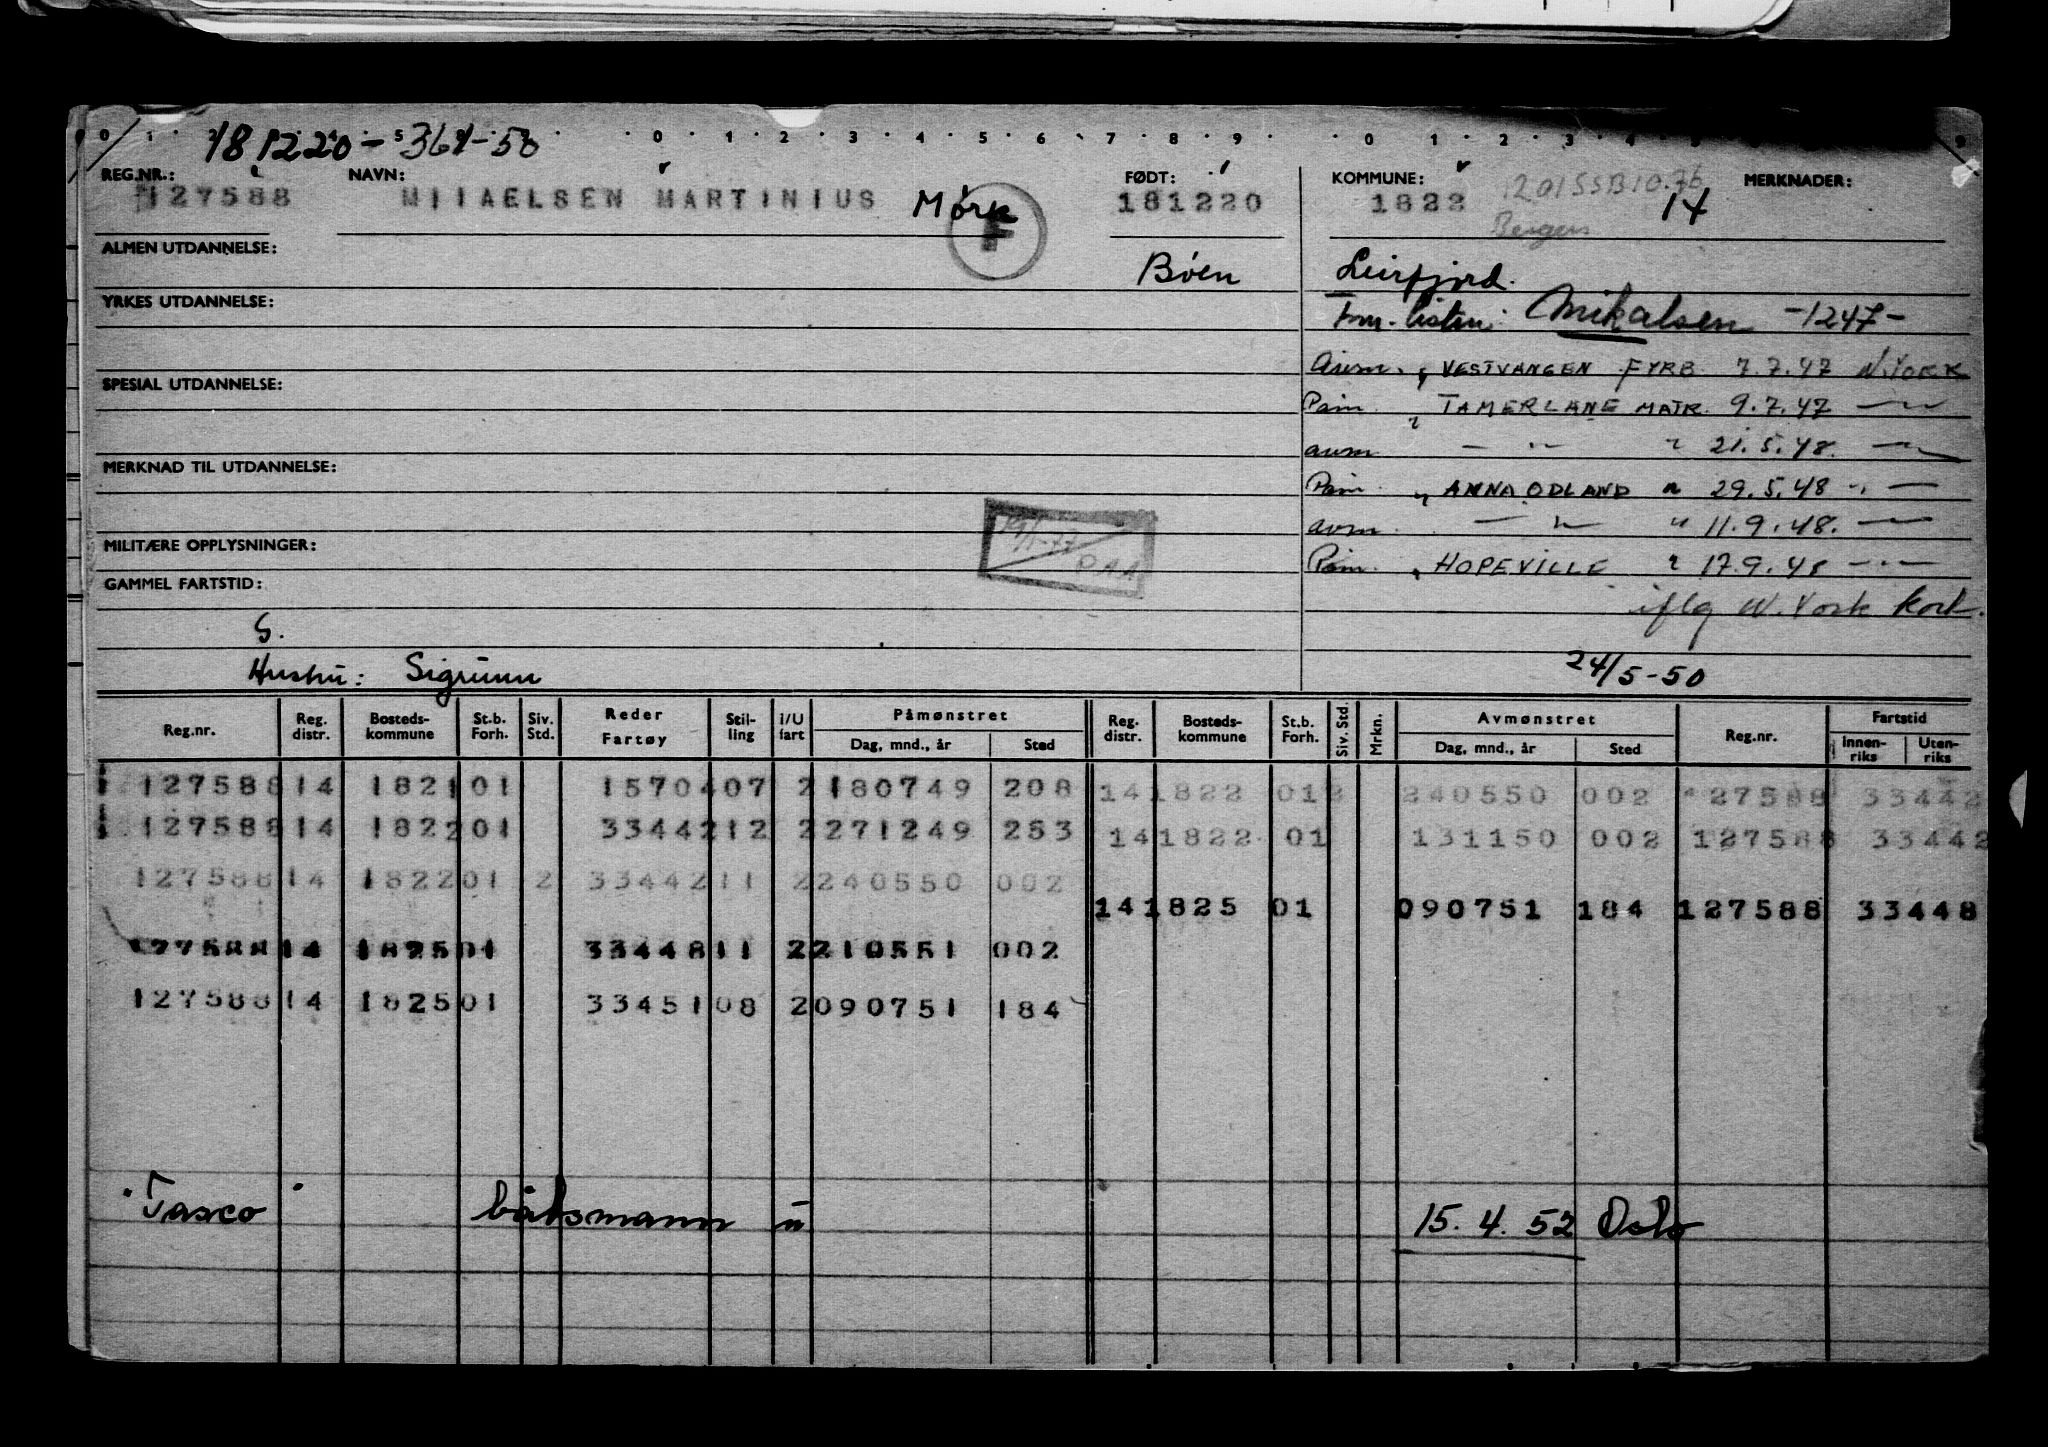 0 1 5 0 1 2 3 4 5 6 7 8 9 0 1 2 3 4 9
181220-361-50
REG.NR.: NAVN: FØDT: KOMMUNE: MERKNADER:
127588 MIIAELSEN MARTINIUS Mørk F 181220 1822 1201SSB10.76 14
Bergen
ALMEN UTDANNELSE: Bøen Leirfjord.
YRKES UTDANNELSE: Mikalsen -1247-
VESTVANGEN FYRB 7.7.47 N.YORK
SPESIAL UTDANNELSE:
Påm. " TAMERLANE MATR. 9.7.47 —"—
avm — " — " 21.5.48. —"—
MERKNAD TIL UTDANNELSE:
Påm. " ANNA ODLAND " 29.5.48 " —
avm. — " — " 11.9.48. —"—
MILITÆRE OPPLYSNINGER: 19/1-77 PAA
Påm. " HOPEVILLE " 17.9.48 —"—
GAMMEL FARTSTID:
iflg N. York kort.
G.
Hustru: Sigrunn 24/5-50
Reg.nr. Reg. distr. Bosteds-kommune St.b. Forh. Siv. Std. Reder Fartøy Stil-ling I/U fart Påmønstret Dag, mnd., år Sted Reg. distr. Bosteds-kommune St.b. Forh. Siv. Std. Mrkn. Avmønstret Dag, mnd., år Sted Reg.nr. Fartstid Innen-riks Uten-riks
127588 14 1821 01 15704 07 2 180749 208 14 1822 01 2 240550 002 127588 33442
127588 14 1822 01 33442 12 2 271249 253 14 1822 01 131150 002 127588 33442
127588 14 1822 01 2 33442 11 2 240550 002
14 1825 01 090751 184 127588 33448
127588 14 1825 01 33448 11 2 210551 002
127588 14 1825 01 33451 08 2 090751 184
"Tasco" båtsmann u 15.4.52 Oslo